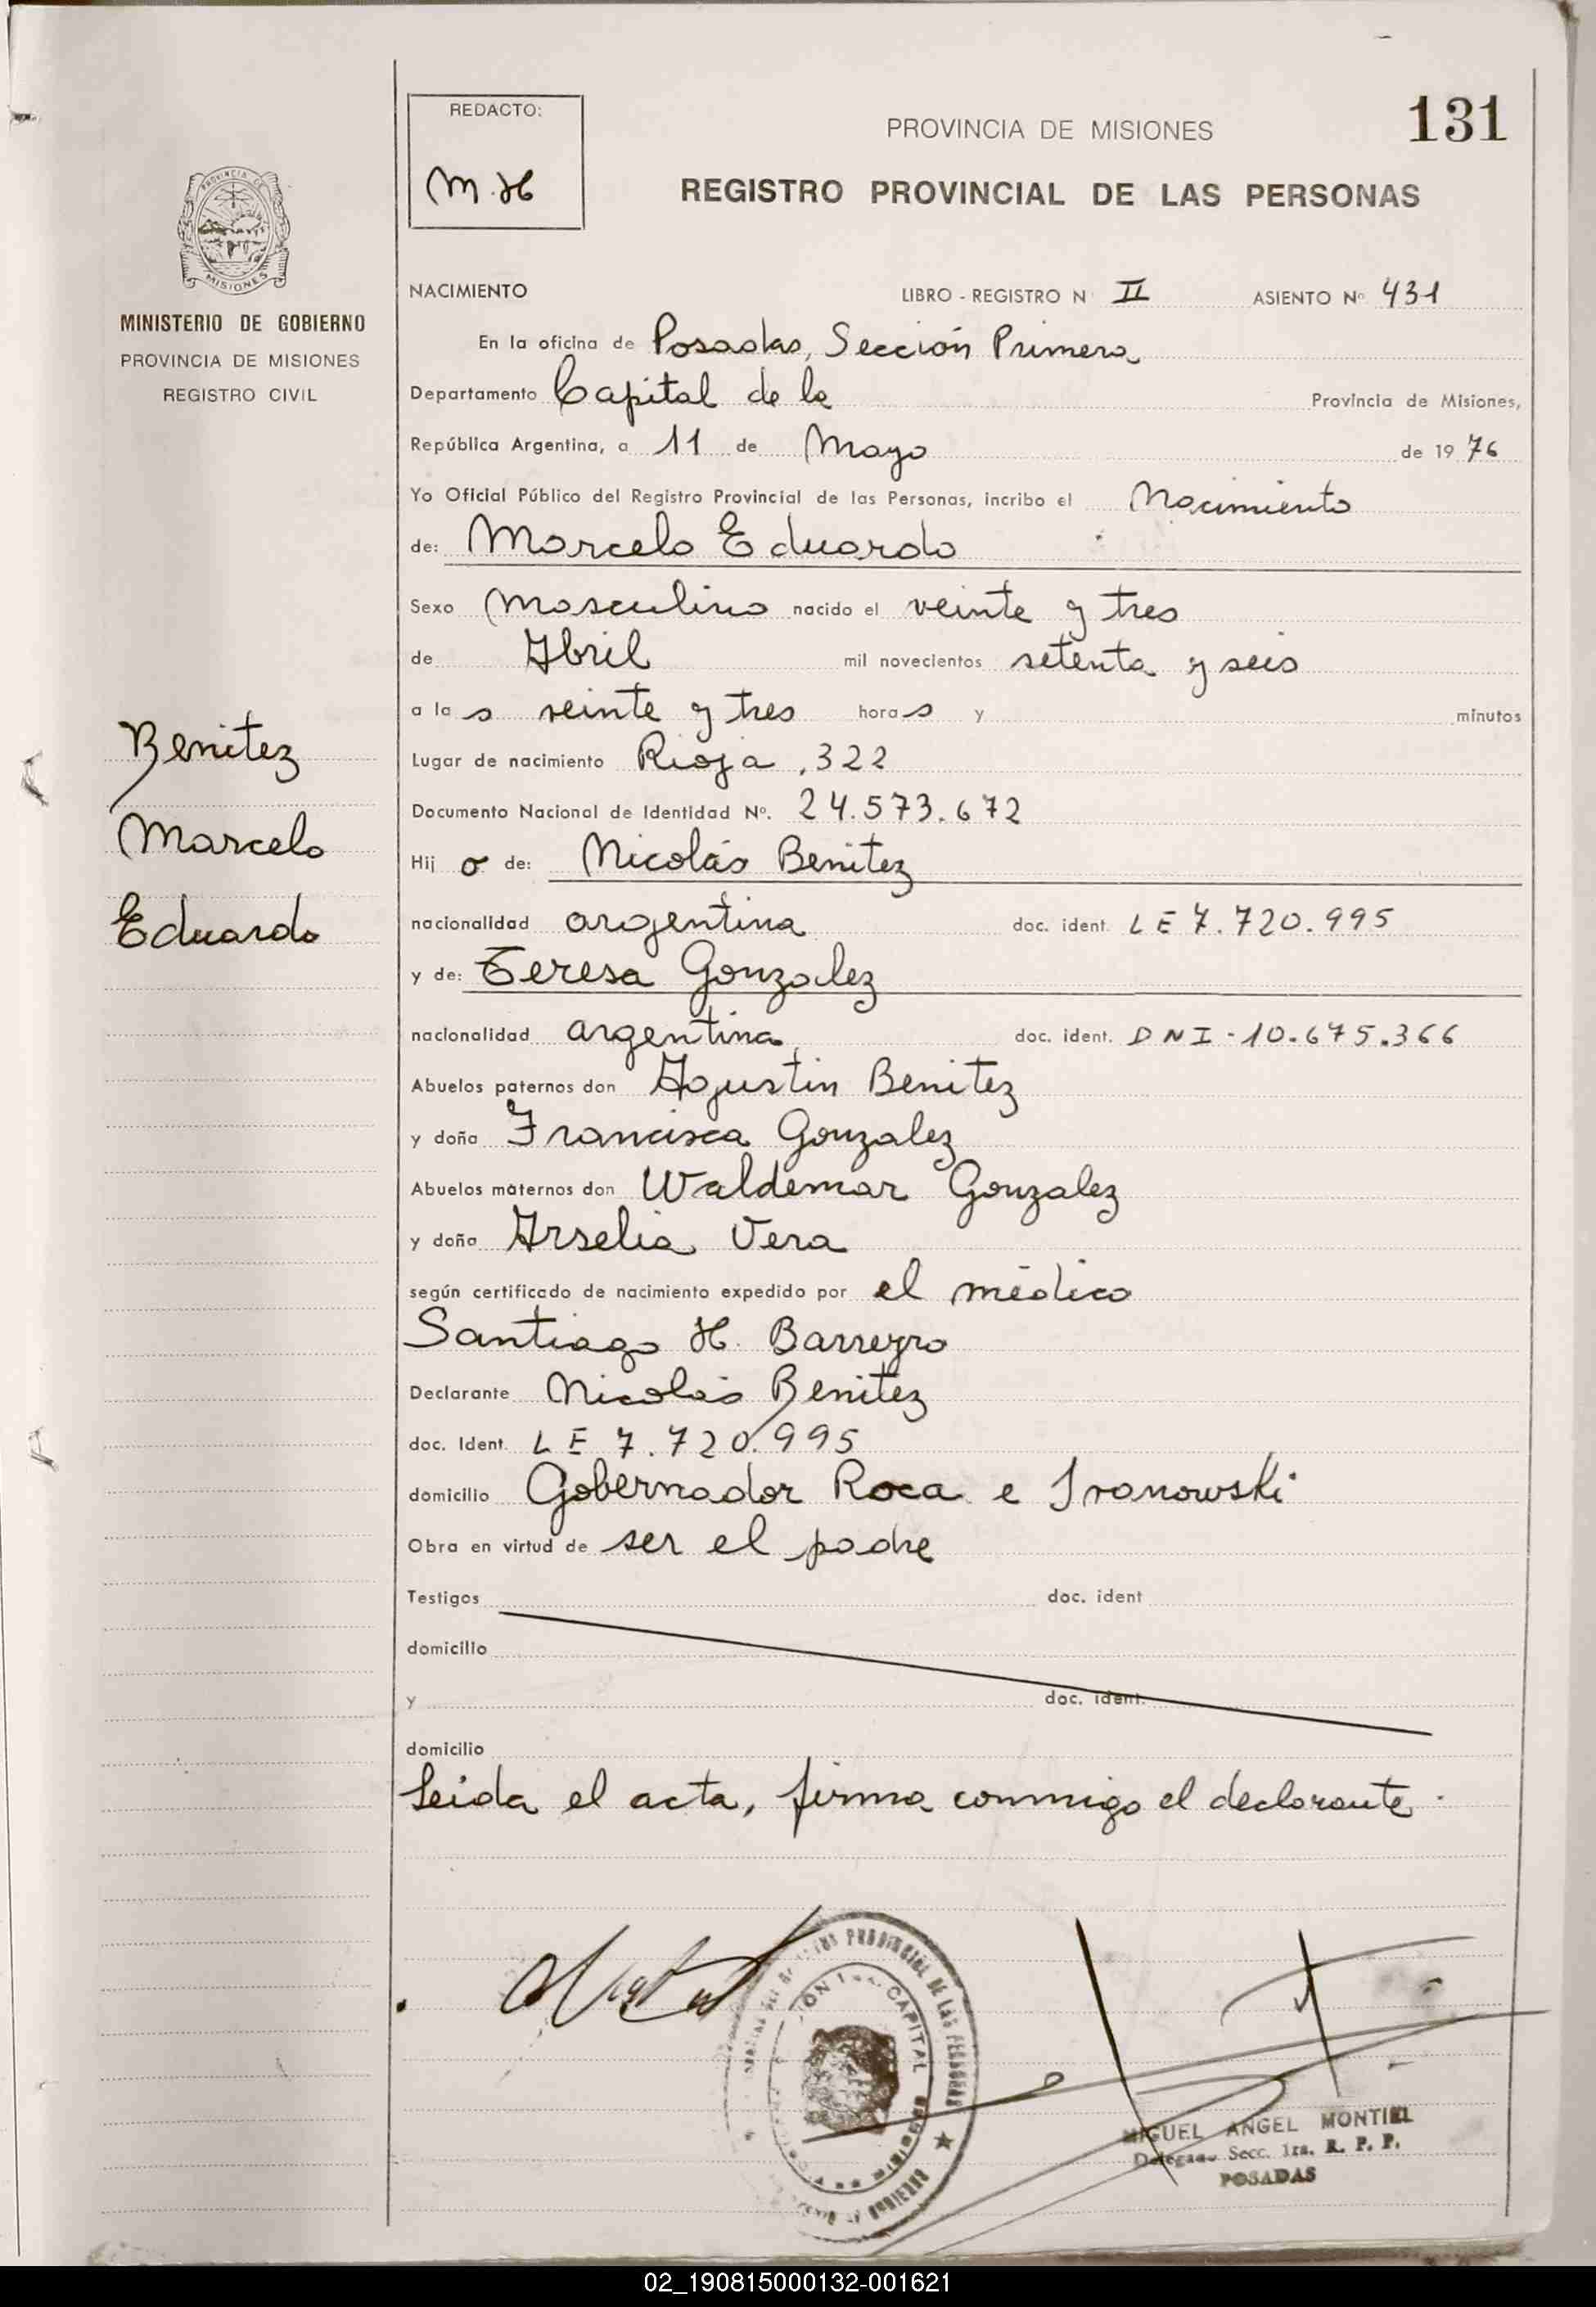 131
REDACTO:
M.H
PROVINCIA DE MISIONES
REGISTRO PROVINCIAL DE LAS PERSONAS
PROVINCIA DE
MISIONES
MINISTERIO DE GOBIERNO
PROVINCIA DE MISIONES
REGISTRO CIVIL
NACIMIENTO LIBRO - REGISTRO N II ASIENTO Nº 431
En la oficina de Posadas, Sección Primera
Departamento Capital de la Provincia de Misiones,
República Argentina, a 11 de Mayo de 19 76
Yo Oficial Público del Registro Provincial de las Personas, incribo el Nacimiento
de: Marcelo Eduardo
Sexo Masculino nacido el veinte y tres
de Abril mil novecientos setenta y seis
a las veinte y tres horas y minutos
Benitez
Marcelo
Eduardo
Lugar de nacimiento Rioja, 322
Documento Nacional de Identidad Nº. 24.573.672
Hijo de: Nicolás Benitez
nacionalidad argentina doc. ident. LE 7.720.995
y de: Teresa Gonzalez
nacionalidad argentina doc. ident. DNI - 10.675.366
Abuelos paternos don Agustin Benitez
y doña Francisca Gonzalez
Abuelos maternos don Waldemar Gonzalez
y doña Arselia Vera
según certificado de nacimiento expedido por el médico
Santiago H. Barreyro
Declarante Nicolás Benitez
doc. Ident. LE 7.720.995
domicilio Gobernador Roca e Ivanowski
Obra en virtud de ser el padre
Testigos doc. ident
domicilio
y doc. ident.
domicilio
leida el acta, firma conmigo el declarante.
PROVINCIAL DE LAS PERSONAS
CAPITAL
MIGUEL ANGEL MONTIEL
Delegado Secc. 1ra. R. P. P.
POSADAS
02_190815000132-001621